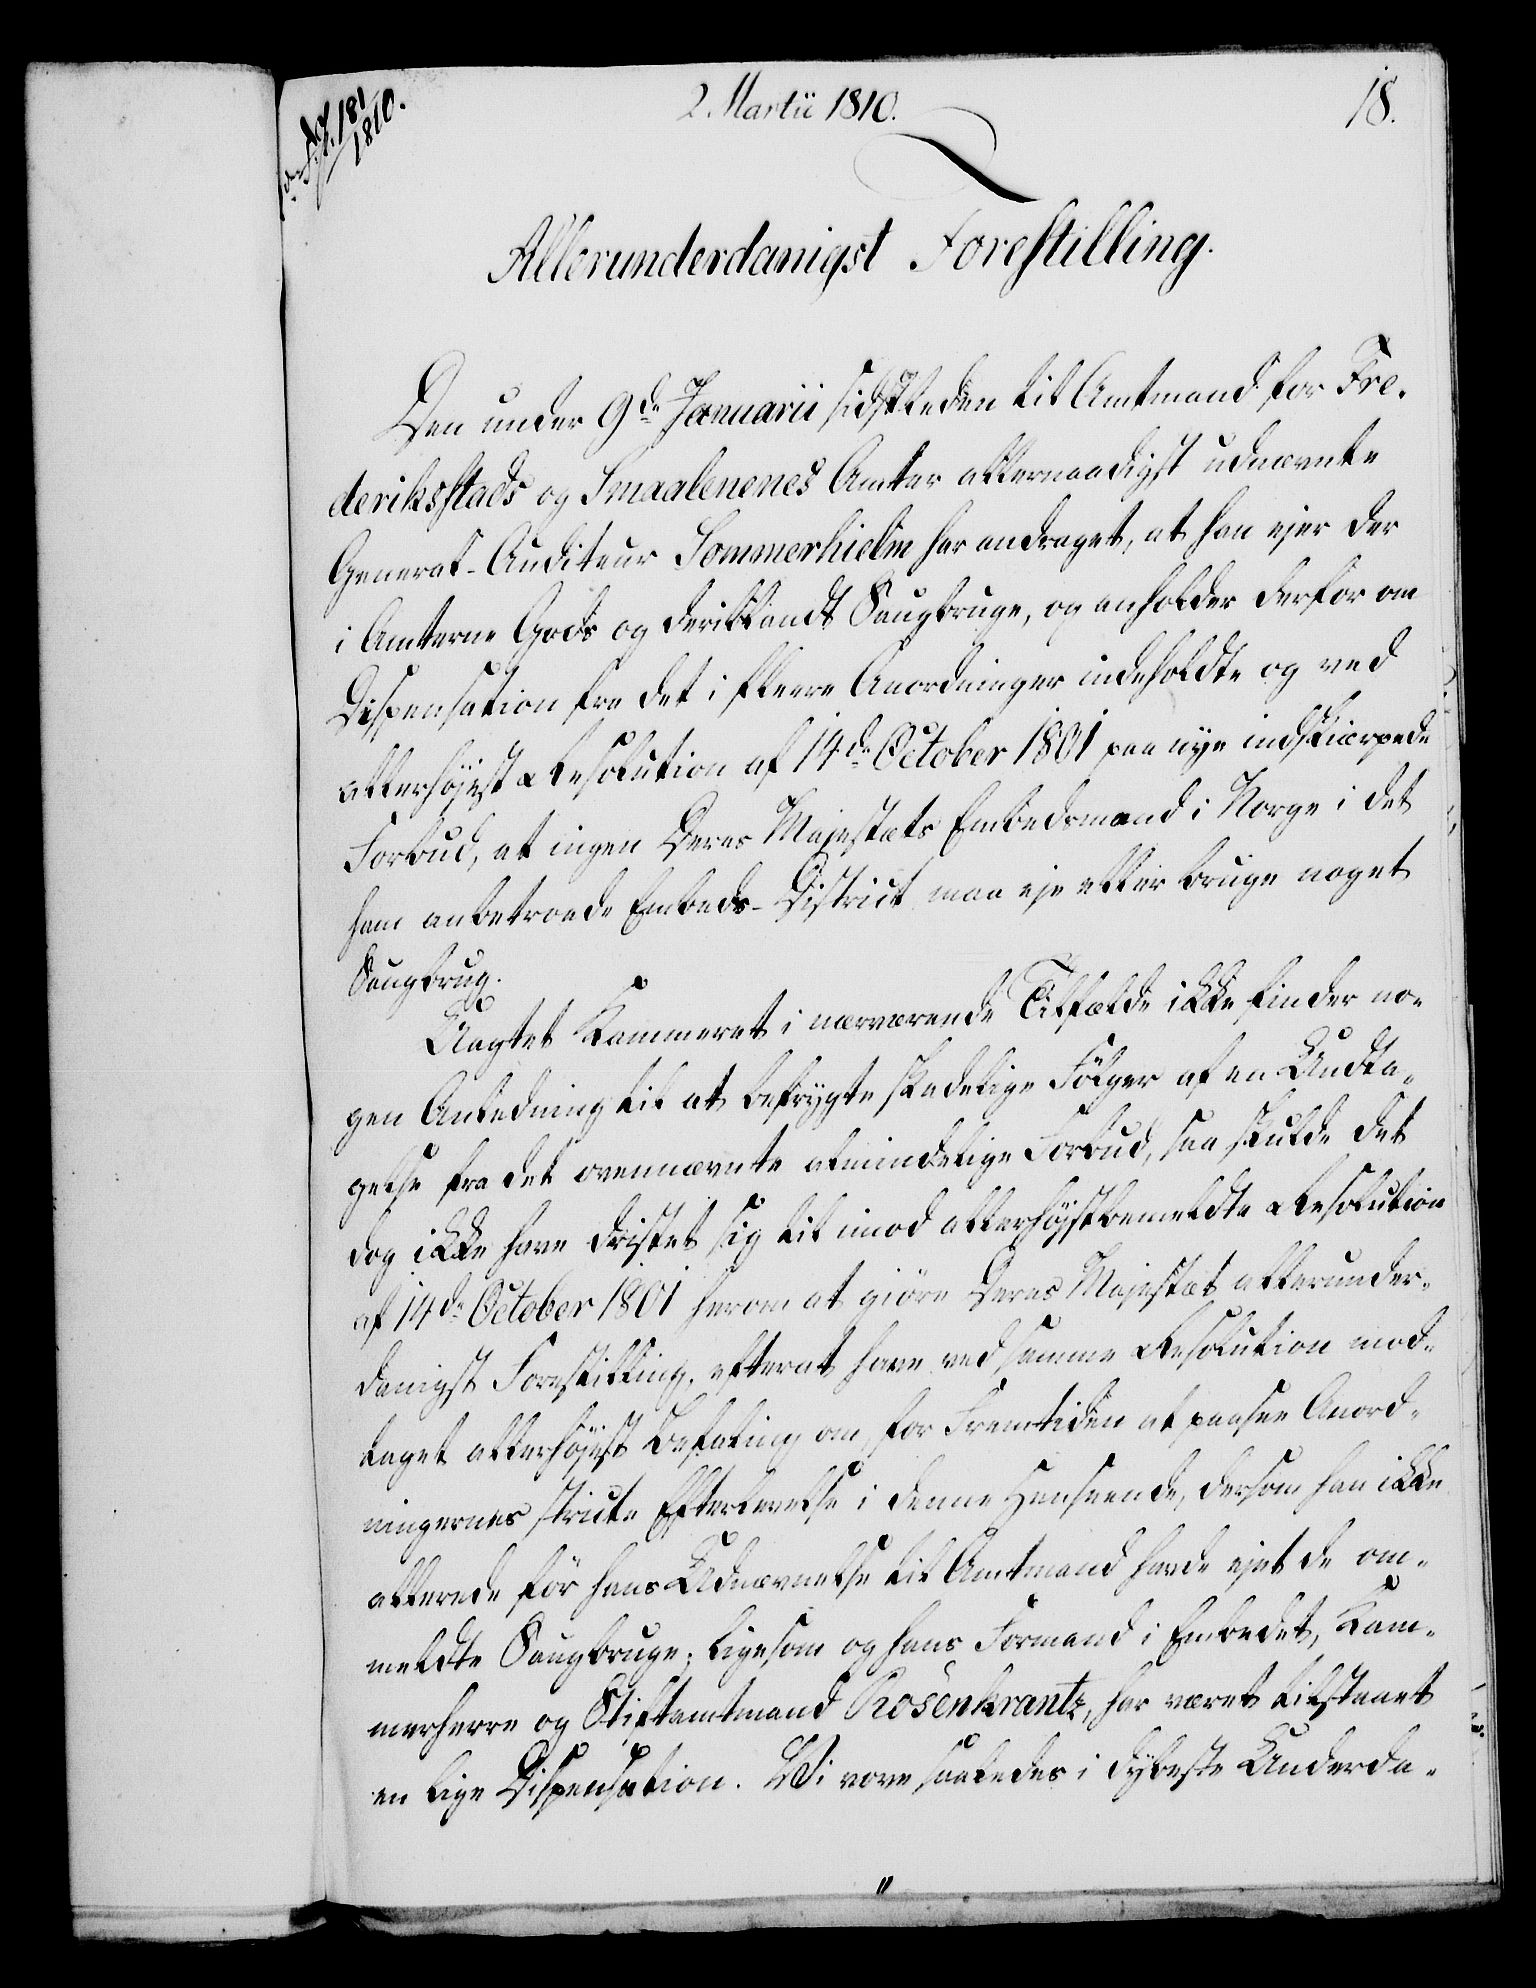 2. Martii 1810.
18.
181/1810.
Allerunderdanigst Forestilling.
Den under 9de Januarii sidstleden til Amtmand for Fre-
deriksstads og Smaalenenes Amter allernaadigst udnævnte
General-Auditeur Sommerhielm har andraget, at han ejer der
i Amterne Gods og deriblandt Saugbruge, og anholder derfor om
Dispensation fra det i fleere Anordninger indeholdte og ved
allerhöjest Resolution af 14de October 1801 paa nye indskiærpede
Forbud, at ingen Deres Majestæts Embedsmand i Norge i det
ham anbetroede Embeds-District maa eje eller bruge noget
Saugbrug.
Uagtet Kammeret i nærværende Tilfælde ikke finder no-
gen Anledning til at befrygte skadelige Fölger af en Undta-
gelse fra det ovennævnte almindelige Forbud, saa skulde det
dog ikke have dristet sig til imod allerhöjstbemeldte Resolution
af 14de October 1801 herom at giöre Deres Majestæt allerunder-
danigst Forestilling, efterat have ved samme Resolution mod-
taget allerhöjest Befaling om, for Fremtiden at paasee Anord-
ningernes stricte Efterlevelse i denne Henseende, dersom han ikke
allerede för hans Udnævnelse til Amtmand havde ejet de om-
meldte Saugbruge; ligesom og hans Formand i Embedet, Kam-
merherre og Stiftamtmand Rosenkrantz, har været tilstaaet
en lige Dispensation. Vi vove saaledes i dybeste Underda-
"